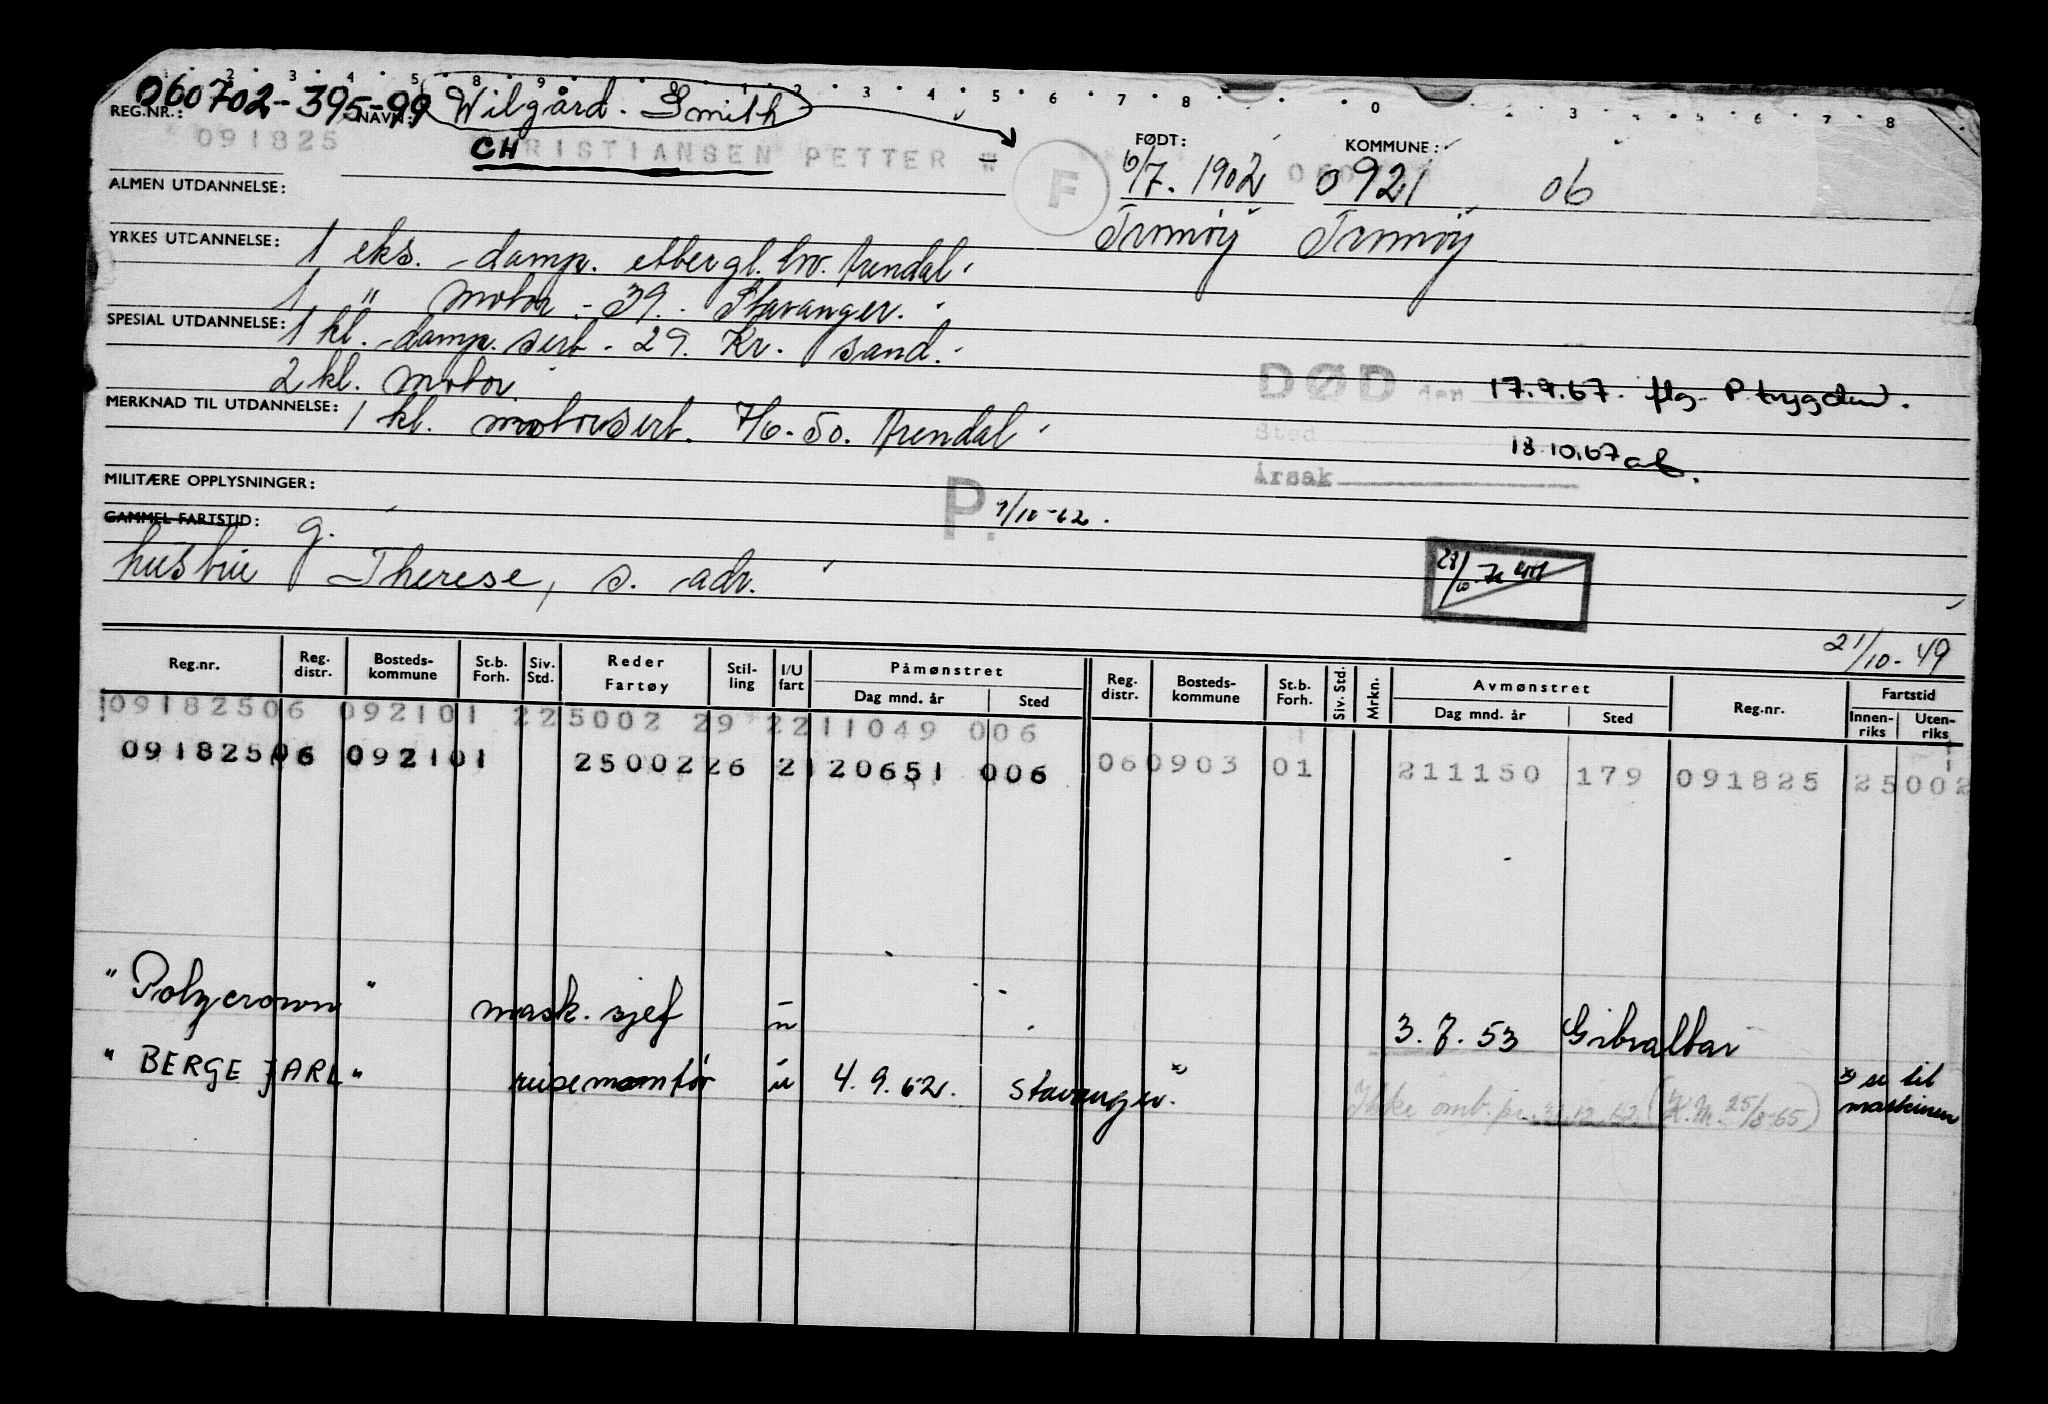 1 2 3 4 5 8 9 0 1 2 3 4 5 6 7 8 0 2 3 4 5 6 7 8
060702-395-99 Wilgård. Smith
REG.NR.: NAVN: FØDT: KOMMUNE:
091825 CHRISTIANSEN PETTER W F 6/7. 1902 0921 06
ALMEN UTDANNELSE: Tromöy Tromöy
YRKES UTDANNELSE: 1 eks. damp. Arendal
1 " motor - 39. Stavanger.
SPESIAL UTDANNELSE: 1 kl. damp. sert - 29. Kr. sand.
2 kl. motor. DØD den 17.9.67. flg. P trygden.
MERKNAD TIL UTDANNELSE: 1 kl. motorsert. 7/6-50. Arendal
Sted 18.10.67
Årsak
MILITÆRE OPPLYSNINGER:
P. 1/10-62.
GAMMEL FARTSTID: g.
hustru Therese, s. adr.
21/10-49
Reg.nr. Reg. distr. Bosteds-kommune St.b. Forh. Siv. Std. Reder Fartøy Stil-ling I/U fart Påmønstret Dag mnd. år Sted Reg. distr. Bosteds-kommune St.b. Forh. Siv. Std. Mrkn. Avmønstret Dag mnd. år Sted Reg.nr. Fartstid Innen-riks Uten-riks
09182506 092101 225002 29 2211049 006
09182506 092101 2500226 2120651 006 060903 01 211150 179 091825 25002
"Polycrown" mask. sjef u 3.7.53 Gibraltar
"BERGE JARL" reisemontör u 4.9.62. Stavanger. x) x) se til
Ikke omb. pr. 31.12.62. (K.M. 25/8-65) maskinen